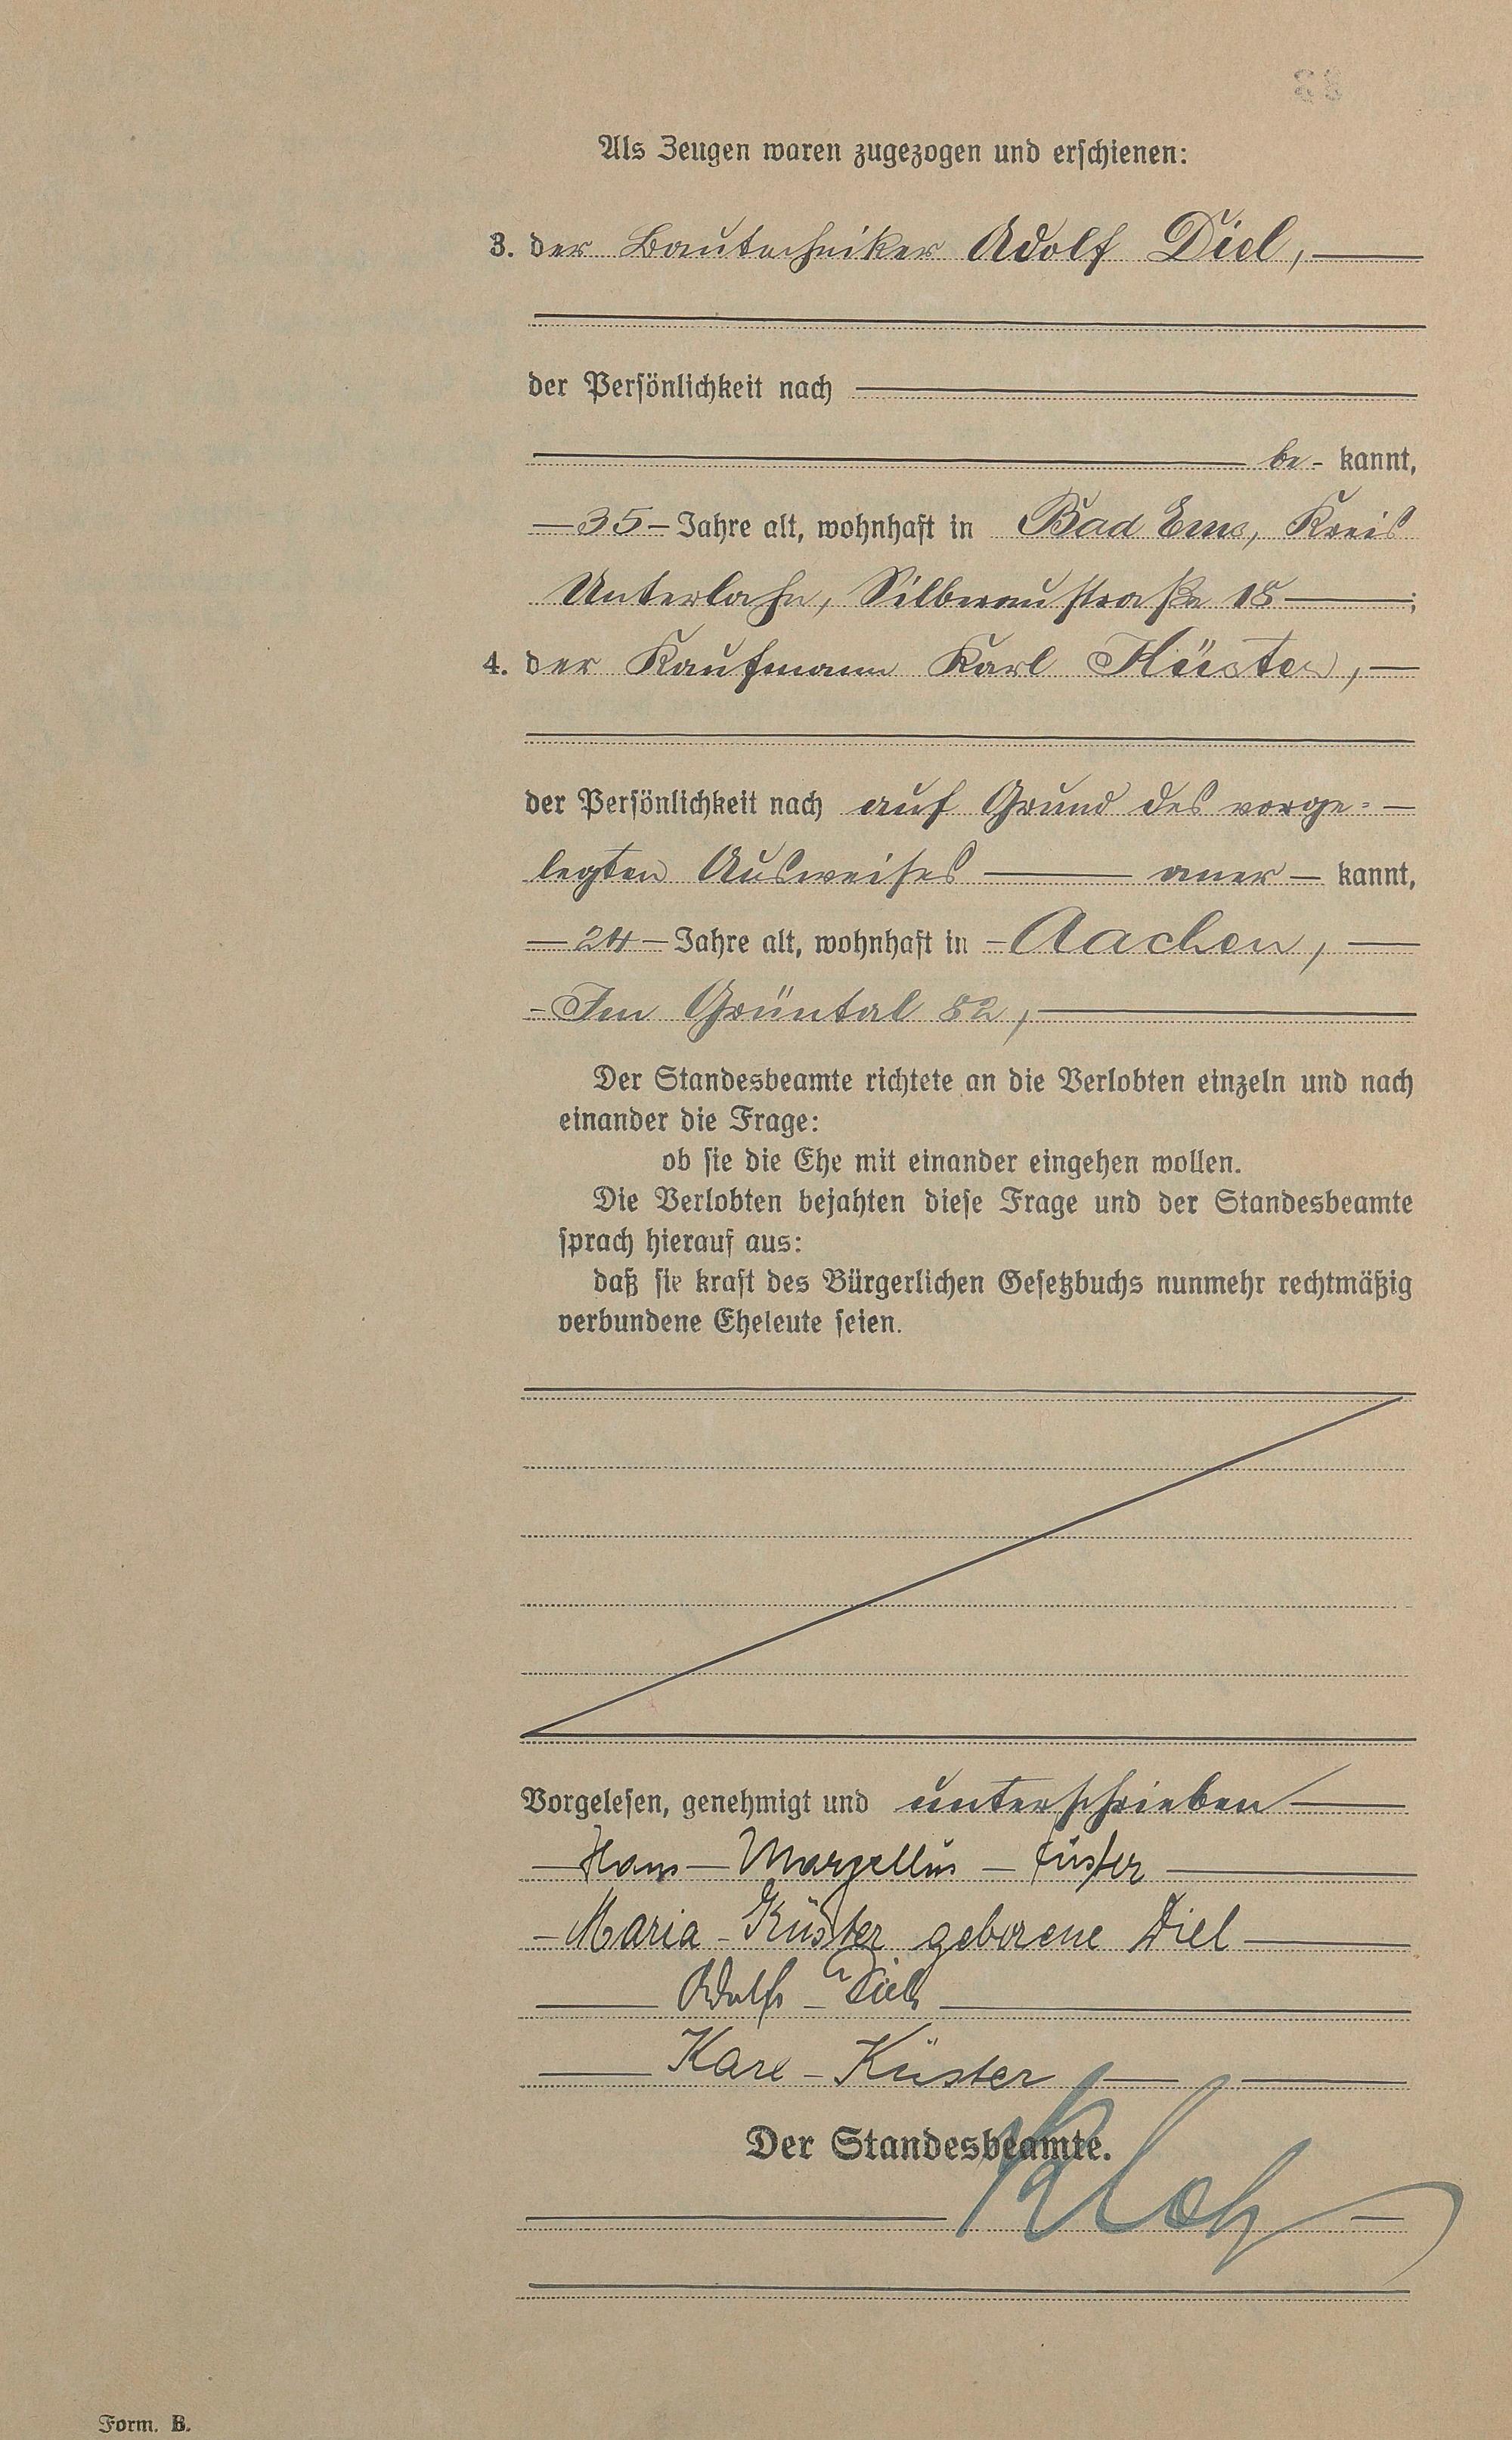 Als Zeugen waren zugezogen und erschienen:
3. der Bautechniker Adolf Diel, —
der Persönlichkeit nach —
— be- kannt,
— 35 — Jahre alt, wohnhaft in Bad Ems, Kreis
Unterlahn, Silberaustraße 18 — ;
4. der Kaufmann Karl Küster, —
der Persönlichkeit nach auf Grund des vorge= —
legten Ausweises — aner — kannt,
— 24 — Jahre alt, wohnhaft in — Aachen, —
- Im Grüntal 82, —
Der Standesbeamte richtete an die Verlobten einzeln und nach
einander die Frage:
ob sie die Ehe mit einander eingehen wollen.
Die Verlobten bejahten diese Frage und der Standesbeamte
sprach hierauf aus:
daß sie kraft des Bürgerlichen Gesetzbuchs nunmehr rechtmäßig
verbundene Eheleute seien.
Vorgelesen, genehmigt und unterschrieben —
— Hans — Marzellus — Küster —
— Maria - Küster geborene Diel —
— Adolf - Diel —
— Karl - Küster —
Der Standesbeamte.
Form. B.